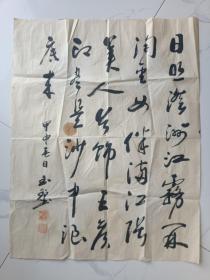 日照澄洲江霧開
淘金女伴滿江隈
美人首飾王侯
印尽是沙中浪
底来 甲申春日玉